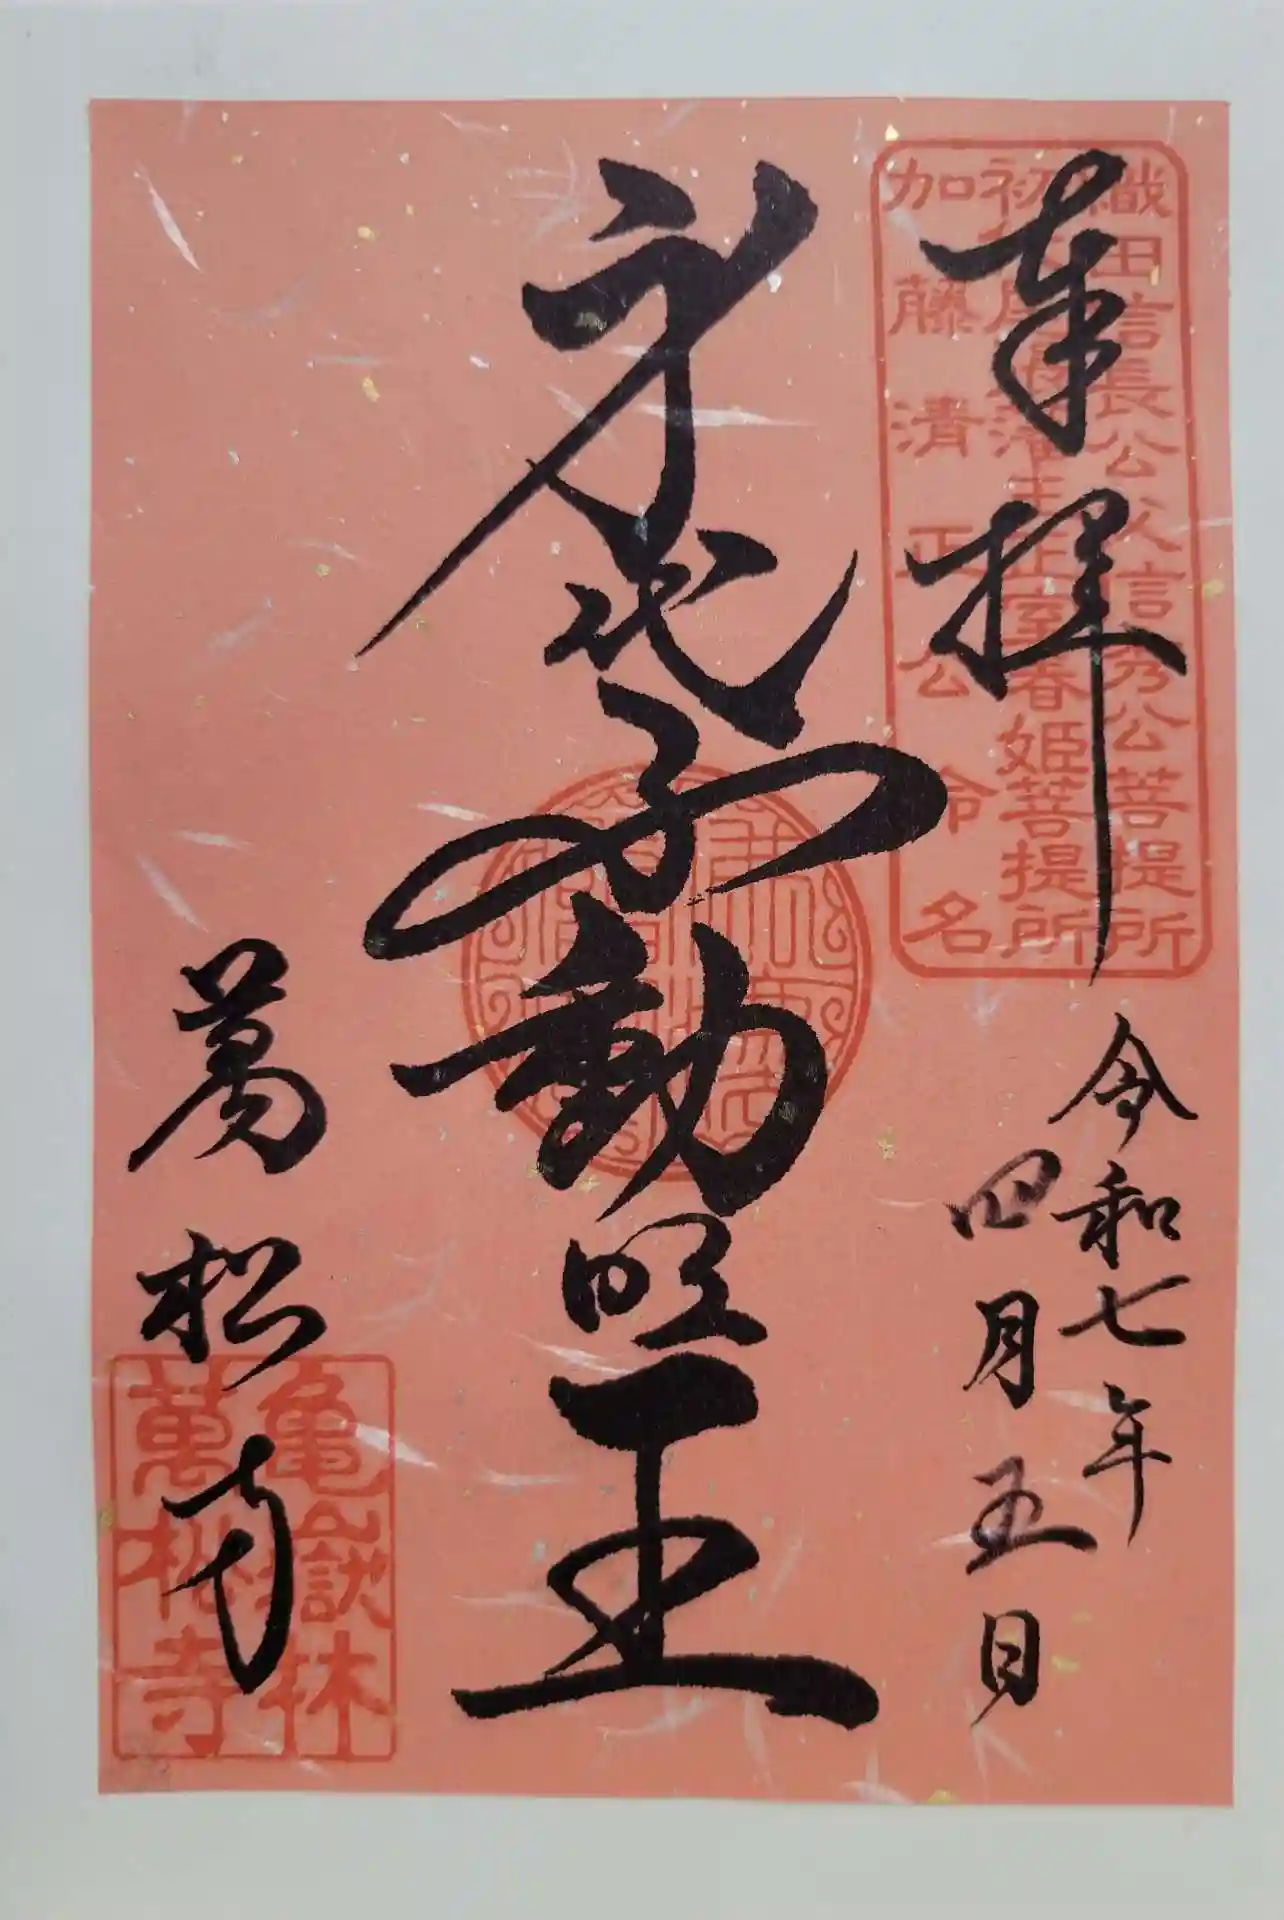 奉拝
織田信長公父信秀公菩提所
初代尾張藩主正室春姫菩提所
加藤清正公命名
令和七年
四月五日
身代不動明王
萬松寺
亀嶽林
萬松寺